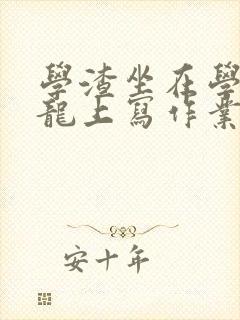 學渣坐在學
龍上寫作業
安十年